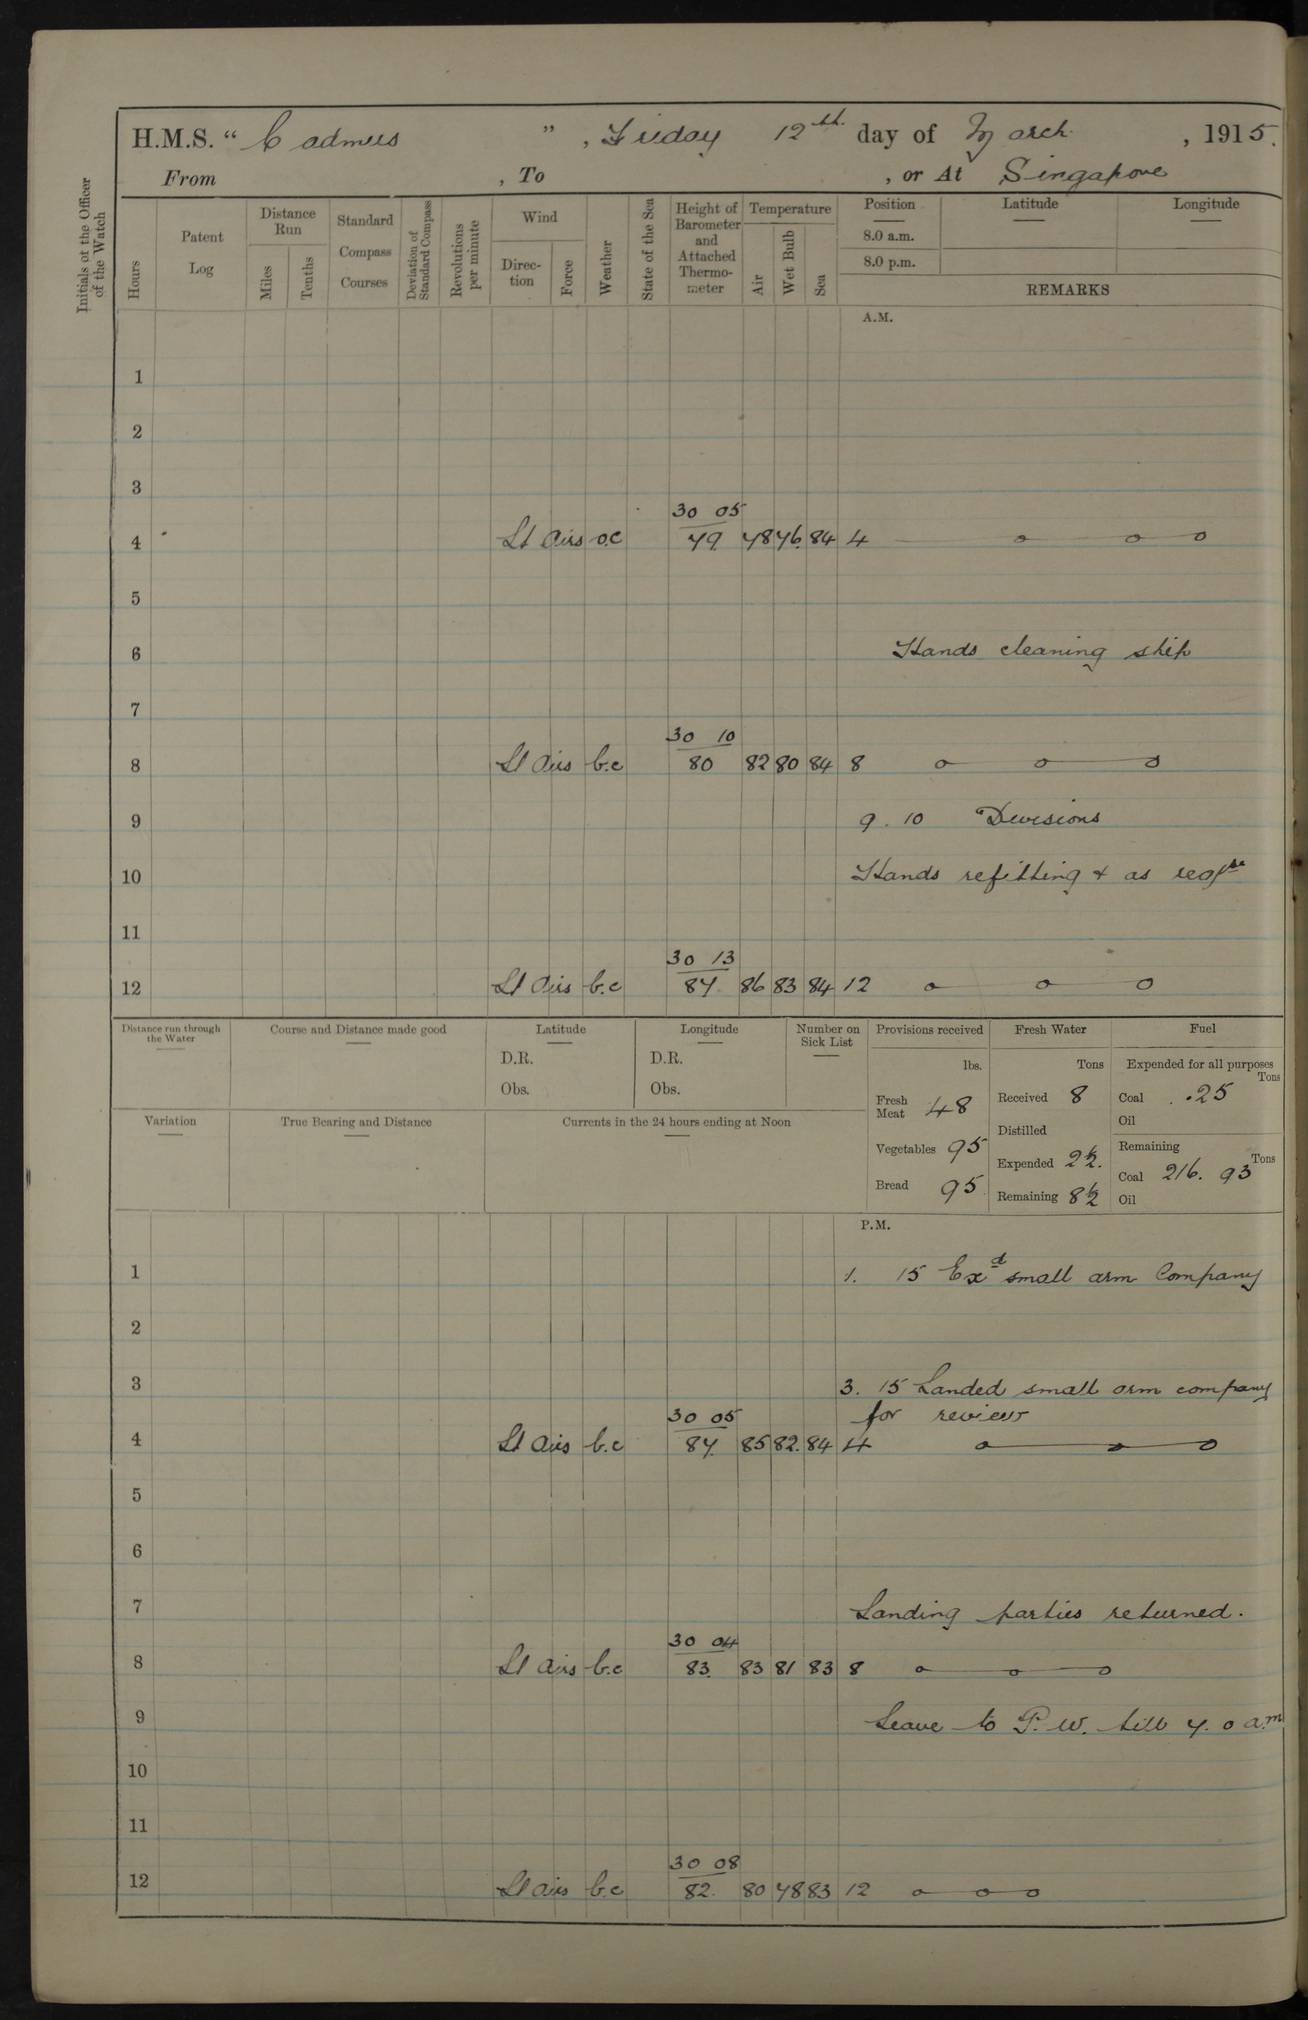 H.M.S. “ Cadmus ” , Friday 12th day of March , 1915.
From , To , or At Singapore
Initials of the Officer of the Watch
Hours
Patent Log
Distance Run
Miles
Tenths
Standard Compass Courses
Deviation of Standard Compass
Revolutions per minute
Wind
Direc-tion
Force
Weather
State of the Sea
Height of Barometer and Attached Thermo-meter
Temperature
Air
Wet Bulb
Sea
Position
8.0 a.m.
8.0 p.m.
Latitude
Longitude
REMARKS
A.M.
1
2
3
30 05
4 Lt Airs o.c 79 78 76 84 4
5
6 Hands cleaning ship
7
30 10
8 Lt Airs b.c 80 82 80 84 8
9 9.10 Divisions
10 Hands refitting & as reqse
11
30 13
12 Lt Airs b.c 87 86 83 84 12
Distance run through the Water
Course and Distance made good
Latitude
D.R.
Obs.
Longitude
D.R.
Obs.
Number on Sick List
Provisions received
lbs.
Fresh Meat 48
Vegetables 95
Bread 95
Fresh Water
Tons
Received 8
Distilled
Expended 2½
Remaining 8½
Fuel
Expended for all purposes
Tons
Coal .25
Oil
Remaining
Tons
Coal 216.93
Oil
Variation
True Bearing and Distance
Currents in the 24 hours ending at Noon
P.M.
1 1. 15 Exd small arm Company
2
3 3. 15 Landed small arm company
for review
30 05
4 Lt Airs b.c 87 85 82 84 4
5
6
7 Landing parties returned.
30 04
8 Lt Airs b.c 83 83 81 83 8
9 Leave to P.W. till 7.0 a.m
10
11
30 08
12 Lt Airs b.c 82 80 78 83 12